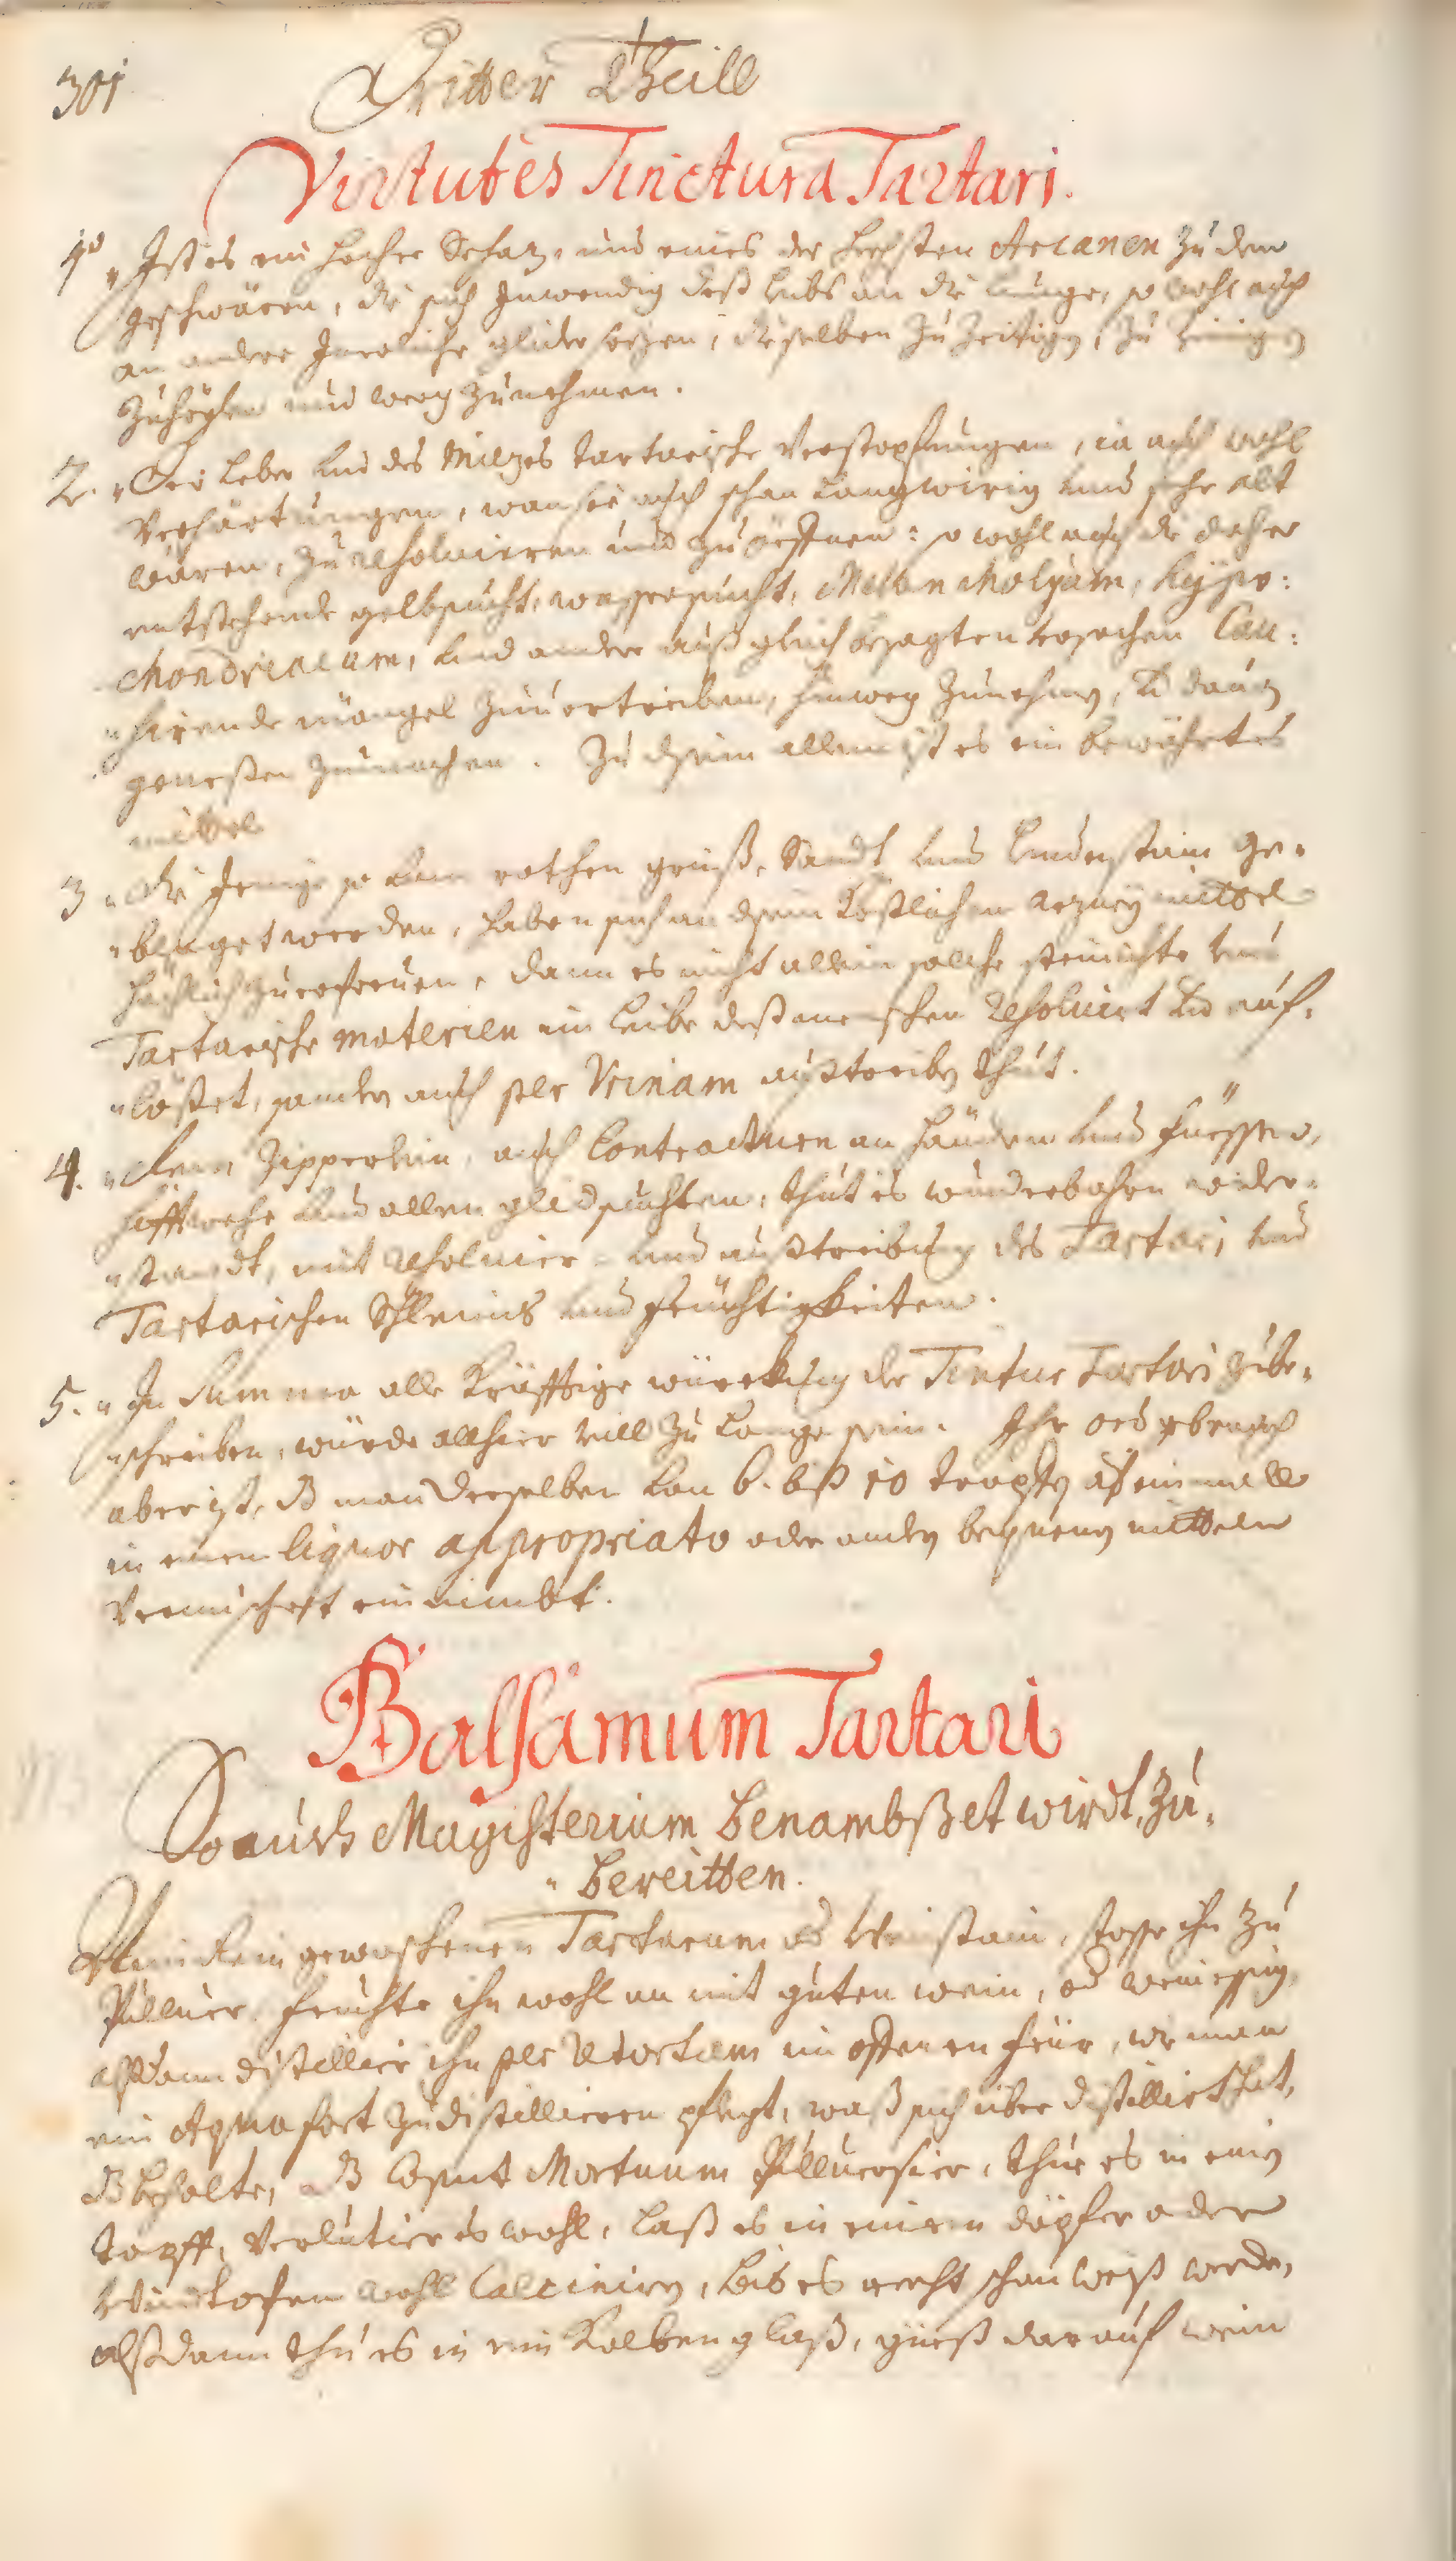 301
Dritter Theill
Virtutes Tinctura Tartari.
1º Ist es ein hocher Schatz, und eines der höchsten Arcanen zu den
geschwären, die sich Inwendig deß Leibs an die Lunge, so wohl auch
an andere Innerliche glider sezen, dieselben zu Zeitigen, zu Reinigen
Zuheylen und weeg zunehmen.
2. Der Leber und des Milzes tartarische Verstopfungen, ia auch wohl
Verhärtungen, wan sie auch schon Langwirig und sehr alt
wären, zu resoluieren und zu öeffnen: so wohl auch die daher
entstehende gelbsucht, wassersucht, Melancholyam, hypo:
chondriacam, und andere auß gleich besagten ursachen Cau:
"sirende mängel zuuertreiben, hinweg zunehmen, und dauon
genesßen zumachen. Zu disem allem ist es ein bewährtes
mittel
3 Die Jenige so vom rothen grieß, Sandt und Lendenstain ge-
"plaget werden, haben sich an disem köstlichen arzney mittel
höchlich zuerfreuen, dann es nicht allein solche steinichte und
Tartarische materien im Leibe deß menschen resoluiert und auf-
"löset, sonder auch per Urinam außtreiben thut.
4. "Dem Zipperlein, auch Contracturen an Händen und Füessen,
Hüfftwehe und allen glidsuchten, thut es wunderbahren wider-
"standt, mit resoluier- und außtreibung des Tartari und
Tartarischen Schleims und feuchtigkeiten.
5. "In Summa alle kräfftige würckung der Tinctur Tartari zube-
"schreiben, würde allhier vill zu Lange sein. Ihr gebrauch
aber ist, dß man derselben von 6. biß 10 tropfen auf einmall
in einem liquor appropriato oder andern bequemen mitteln
Vermischest einnimbt.
Balsamum Tartari
So auch Magisterium benambßet wirdt, Zu-
"bereitten.
Nim Rein gewaschenen Tartarum od Weinstain, stosse ihn zu
Puluer feuchte ihn wohl an mit guten wein, od weinessig,
alßdann distillier ihn per Retortam im offenen feür, wie man
ein Aqua fort zu distillieren pflegt, waß sich über distilliert hat,
dß behalte, dß Caput Mortuum Puluerisier, thue es in einen
topff, Verlutier es wohl, Laß es in einem döpfer oder
Windtofen wohl Calciniren, bis es recht schön weiß werde,
alßdann thu es in ein Kolbenglaß, gueß darauf wein